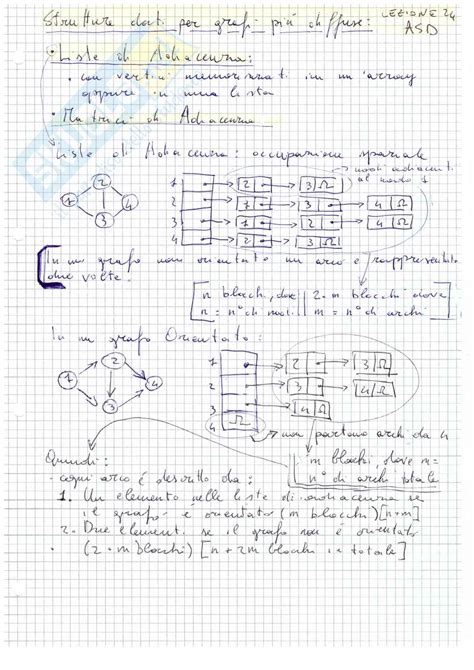 Strutture dati per grafi più diffuse:
LEZIONE 24
ASD
• Liste di Adiacenza:
• con vertici memorizzati in un array
oppure in una lista
• Matrici di Adiacenza
Liste di Adiacenza: occupazione spaziale
nodi adiacenti
al nodo 1
1 2 3 Ω
2 1 3 4 Ω
3 1 2 4 Ω
4 2 3 Ω
1 2 3 4
In un grafo non orientato un arco è rappresentato
due volte.
n blocchi, dove
n = n° di nodi
2·m blocchi dove
m = n° di archi
In un grafo Orientato:
1 2 3 4
1 2 3 Ω
2 3 4 Ω
3 4 Ω
4 Ω
non partono archi da 4
m blocchi, dove m =
n° di archi totale
Quindi:
- ogni arco è descritto da:
1. Un elemento nelle liste di adiacenza se
il grafo è orientato (m blocchi) [n+m]
2. Due elementi se il grafo non è orientato
(2·m blocchi) [n + 2m blocchi in totale]